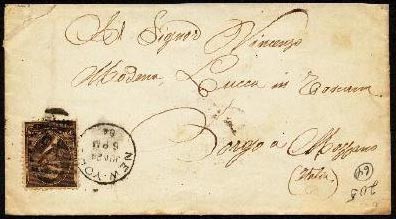 Al Signor Vincenzo
Modena, Lucca in Toscana
Borgo a Mozzano
(Italia)
NEW-YORK
JUN 24
6 PM
208
69